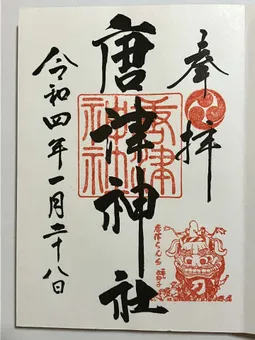 奉拝
唐津神社
唐津神社
唐津くんち
令和四年一月二十八日